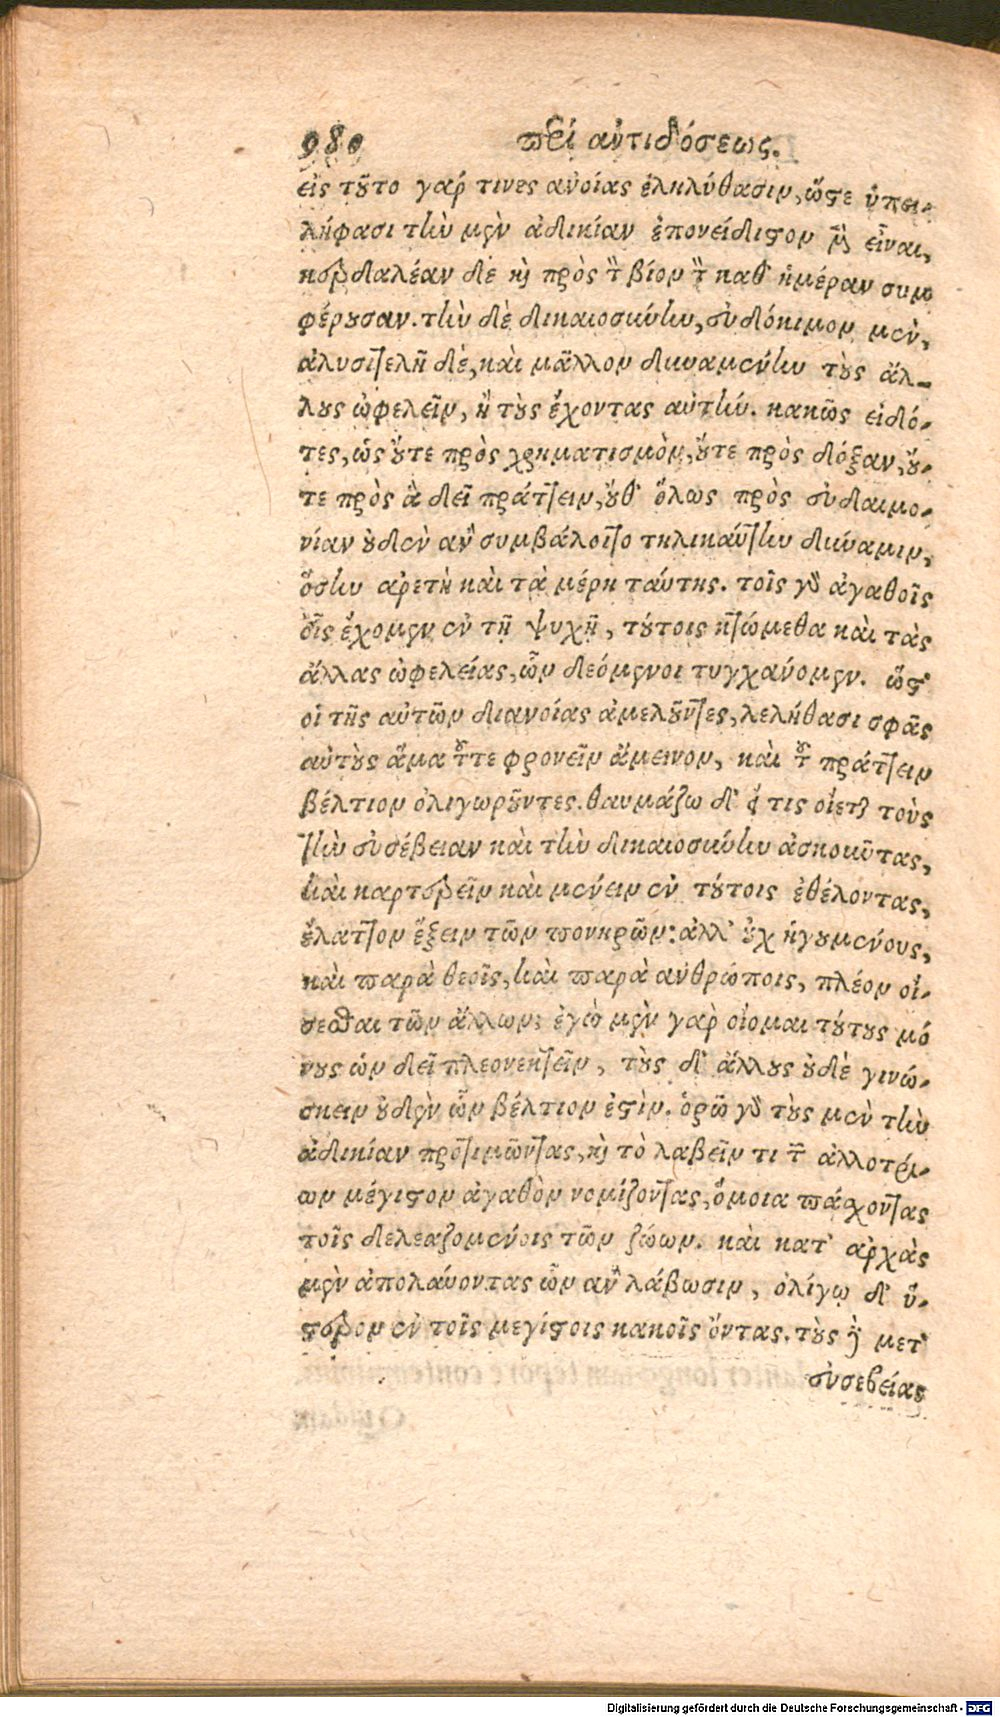 980 περὶ ἀντιδόσεως.
εἰς τοῦτο γάρ τινες ἀνοίας ἐληλύθασιν, ὥστε ὑπει-
λήφασι τὴν μὲν ἀδικίαν ἐπονείδιστον μὲν εἶναι,
κερδαλέαν δὲ καὶ πρὸς τὸν βίον τὸν καθ' ἡμέραν συμ
φέρουσαν. τὴν δὲ δικαιοσύνην, εὐδόκιμον μὲν,
ἀλυσιτελῆ δὲ, καὶ μᾶλλον δυναμένην τοὺς ἄλ-
λους ὠφελεῖν, ἢ τοὺς ἔχοντας αὐτήν. κακῶς εἰδό-
τες, ὡς οὔτε πρὸς χρηματισμὸν, οὔτε πρὸς δόξαν, οὔ-
τε πρὸς ἃ δεῖ πράττειν, οὔθ' ὅλως πρὸς εὐδαιμο-
νίαν οὐδὲν ἂν συμβάλοιτο τηλικαύτην δύναμιν,
ὅσην ἀρετὴ καὶ τὰ μέρη ταύτης. τοῖς γὰρ ἀγαθοῖς
οἷς ἔχομεν ἐν τῇ ψυχῇ, τούτοις κτώμεθα καὶ τὰς
ἄλλας ὠφελείας, ὧν δεόμενοι τυγχάνομεν. ὥσθ'
οἱ τῆς αὑτῶν διανοίας ἀμελοῦντες, λελήθασι σφᾶς
αὐτοὺς ἅμα τοῦτε φρονεῖν ἄμεινον, καὶ τοῦ πράττειν
βέλτιον ὀλιγωροῦντες. θαυμάζω δ' εἴ τις οἴεται τοὺς
τὴν εὐσέβειαν καὶ τὴν δικαιοσύνην ἀσκοῦντας,
καὶ καρτερεῖν καὶ μένειν ἐν τούτοις ἐθέλοντας,
ἔλαττον ἕξειν τῶν πονηρῶν: ἀλλ' οὐχ ἡγουμένους,
καὶ παρὰ θεοῖς, καὶ παρὰ ἀνθρώποις, πλέον οἴ-
σεσθαι τῶν ἄλλων; ἐγὼ μὲν γὰρ οἴομαι τούτους μό
νους ὧν δεῖ πλεονεκτεῖν, τοὺς δ' ἄλλους οὐδὲ γινώ-
σκειν οὐδὲν ὧν βέλτιον ἐστίν. ὁρῶ γὰρ τοὺς μὲν τὴν
ἀδικίαν προτιμῶντας, καὶ τὸ λαβεῖν τι τῶν ἀλλοτρί-
ων μέγιστον ἀγαθὸν νομίζοντας, ὅμοια πάσχοντας
τοῖς δελεαζομένοις τῶν ζώων. καὶ κατ' ἀρχὰς
μὲν ἀπολαύοντας ὧν ἂν λάβωσιν, ὀλίγῳ δ' ὕ-
στερον ἐν τοῖς μεγίστοις κακοῖς ὄντας. τοὺς δὲ μετ'
εὐσεβείας
Digitalisierung gefördert durch die Deutsche Forschungsgemeinschaft - DFG